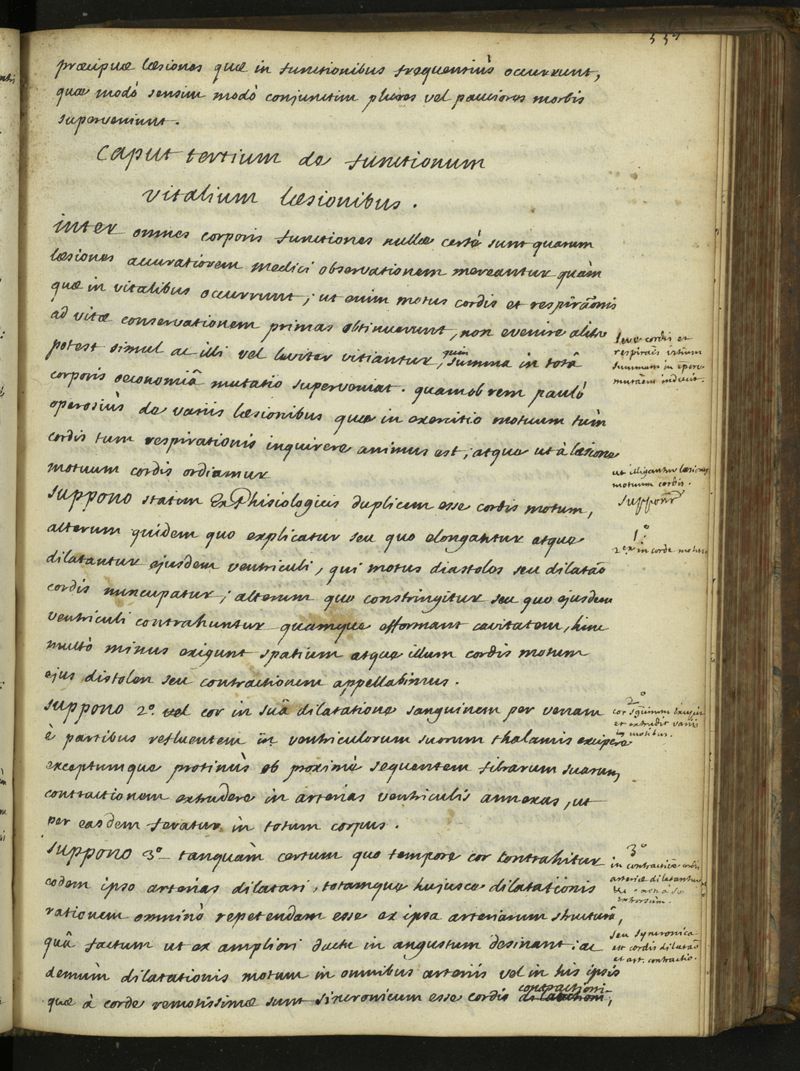 præcipuæ læsiones quæ in functionibus frequentiùs occurrunt,
quæ modò sensim modò conjunctim plures vel pauciores morbis
superveniunt.
Caput tertium de functionum
vitalium læsionibus.
inter omnes corporis functiones nullæ certè sunt quarum
læsiones accuratiorem medici observationem mereantur quàm
quæ in vitalibus occurrunt; ut enim motus cordis et respirãonis
ad vitæ conservationem primas obtinuerunt, non evenire aliter
potest simul ac illi vel leviter vitiantur, quin summa in totâ
corporis œconomiâ mutatio superveniat. quamobrem paulò
operosiùs de variis læsionibus quæ in exercitio motuum tùm
cordis tum respirationis inquirere animus est; atque ut à læsione
motuum cordis ordiamur
suppono statum Ex Phisiologicis duplicem esse cordis motum,
alterum quidem quo explicatur seu quo elongantur atque
dilatantur ejusdem ventriculi, qui motus diastoles seu dilatão
cordis nuncupatur; alterum quo constringitur seu quo ejusdem
ventriculi contrahuntur quamque efformant cavitatem, hinc
multò minus exigunt spatium atque illum cordis motum
ejus distolen seu contractionem appellabimus.
suppono 2º. vel cor in suâ dilatatione sanguinem per venam
è partibus refluentem in ventriculorum suorum thalamis excipere
exceptumque protinùs ob proximè sequentem fibrarum suarum
contractionem extrudere in arterias ventriculis annexas, ut
per easdem feratur in totum corpus.
suppono 3º tanquàm certum quo tempore cor contrahitur
eodem ipso arterias dilatari, totamque hujusce dilatationis
rationem omninò repetendam esse ex ipsa arteriarum structurâ,
quâ factum ut ex ampliori ductu in angustum desinant: ac
demùm dilatationis motum in omnibus arteriis vel in his ipsis
contractioni
quæ à corde remotissimæ sunt sincronicum esse cordis dilatationi,
cordis et
respirãis vitium
summam in
mutãoem inducit.
ut illigantur læsiones
motuum cordis.
supponr
1º
2ex in corde motus
2º
cor sguinem
et extrudit variis
in motibus.
3º
in contractiõe cordis
arteriæ dilatantur
seu syncronica
est cordis dilatão
et art. contractio.